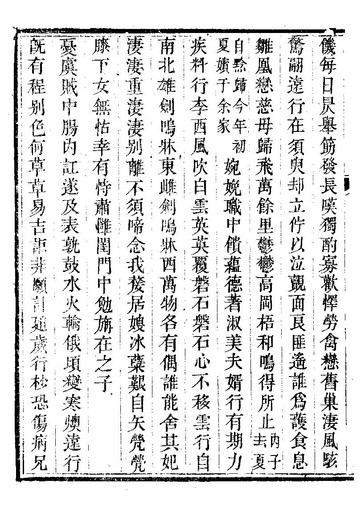 儀每日昃舉筯發長嘆獨酌寡歡悰勞禽戀舊巢淒風駭
驚翮遠行在須臾却立佇以泣覿面良匪遙誰爲護食息
雛凰戀慈母歸飛萬餘里鬱鬱高岡梧和鳴得所止內子去夏
自黔歸今年初夏嬪子余家婉娩職中饋蘊德著淑美夫婿行有期力
疾料行李西風吹白雲英英覆磐石磐石心不移雲行自
南北雄劍鳴牀東雌劍鳴牀西萬物各有偶誰能舍其妃
淒淒重淒淒別離不須啼念我嫠居嫂冰蘗艱自矢煢煢
膝下女無怙幸有恃肅雝閨門中勉旃在之子
憂虞賊中腸內訌遂及表鼓水火輸俄頃變寒燠遠行
旣有程別色何草草易言詎非願言延歲行杪恐傷病兄